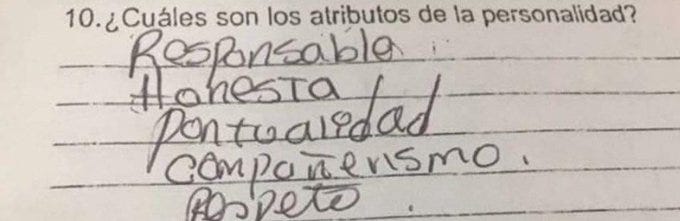 10. ¿Cuáles son los atributos de la personalidad?
Responsable
Honesta
pontualidad
compañerismo.
Respeto.